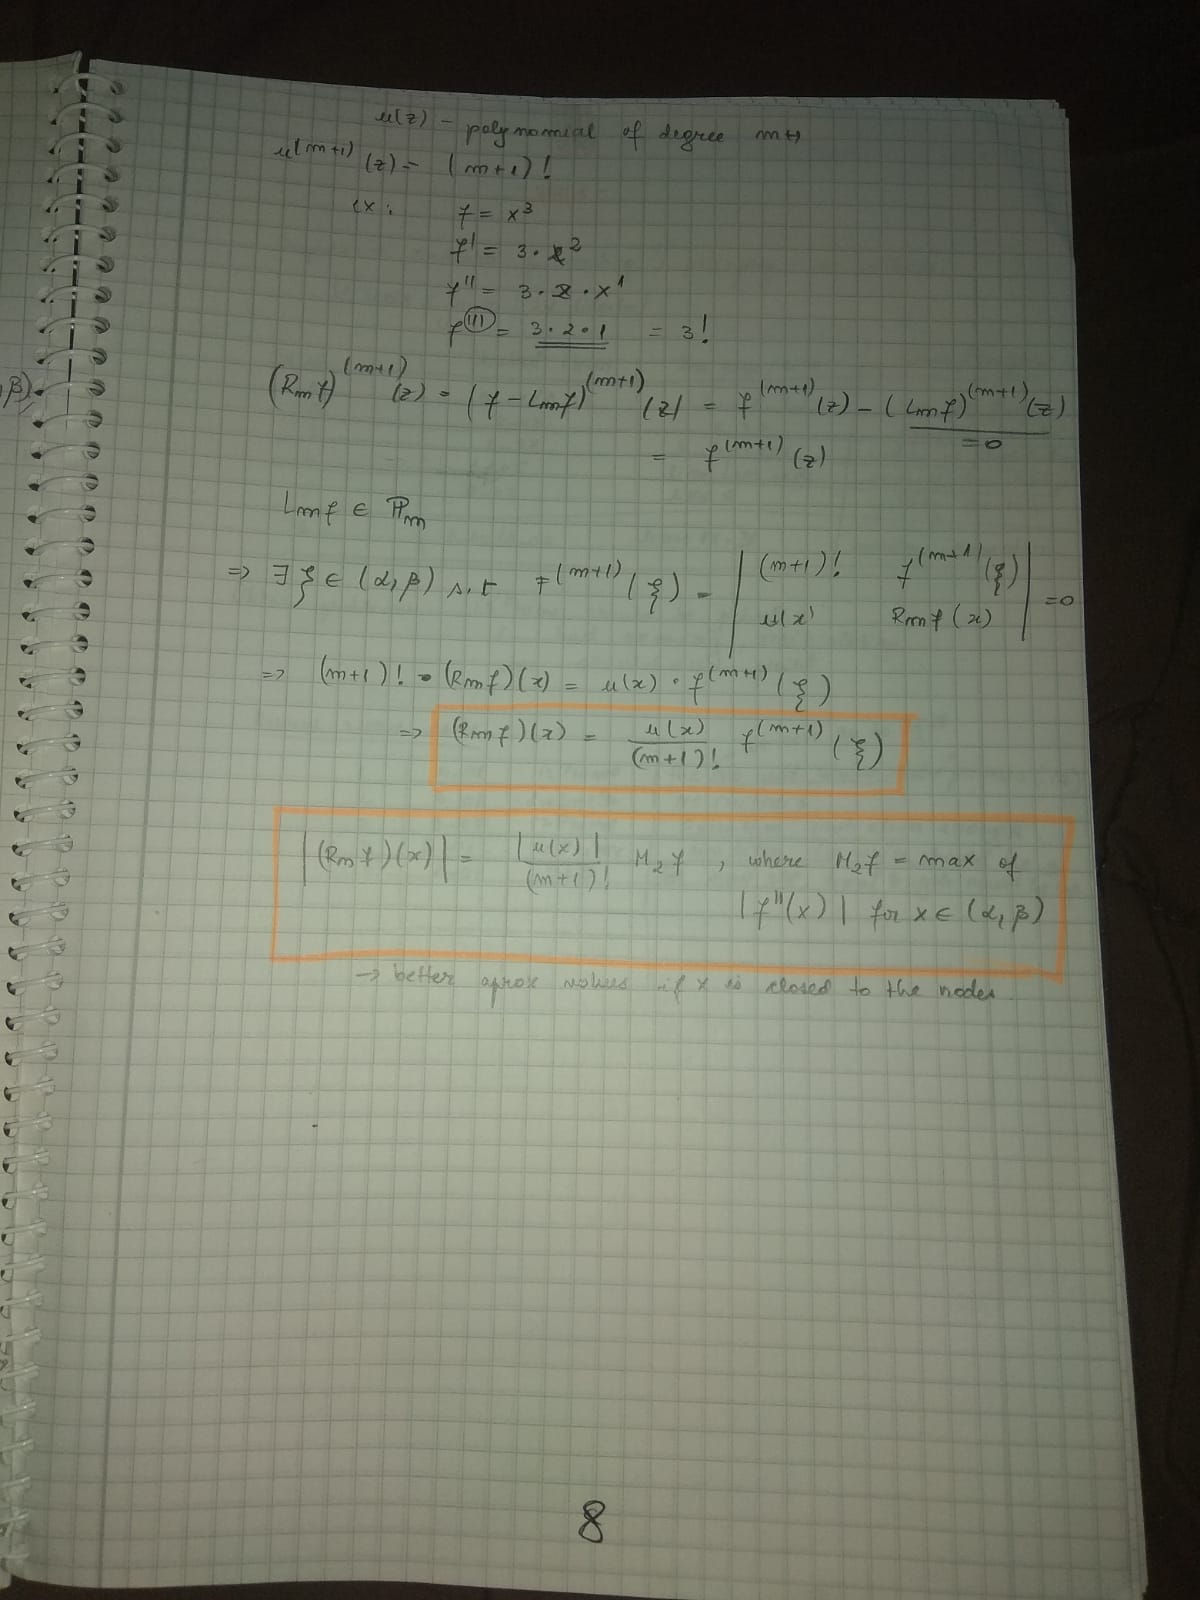 u(z) - polynomial of degree m+1
u^(m+1) (z) = (m+1)!
ex: f = x^3
f' = 3·x^2
f'' = 3·2·x^1
f^(III) = 3·2·1 = 3!
(Rmf)^(m+1) (z) = (f - Lmf)^(m+1) (z) = f^(m+1) (z) - (Lmf)^(m+1) (z)
=0
= f^(m+1) (z)
β)
Lmf ∈ ℙm
=> ∃ ξ ∈ (α, β) s.t F^(m+1) (ξ) = | (m+1)! f^(m+1) (ξ) | =0
u(x) Rmf(x)
=> (m+1)! · (Rmf)(x) = u(x) · f^(m+1) (ξ)
=> (Rmf)(x) = u(x)/(m+1)! f^(m+1) (ξ)
|(Rmf)(x)| = |u(x)|/(m+1)! M₂f , where M₂f = max of
|f''(x)| for x ∈ (α, β)
-> better aprox values if x is closed to the nodes
8